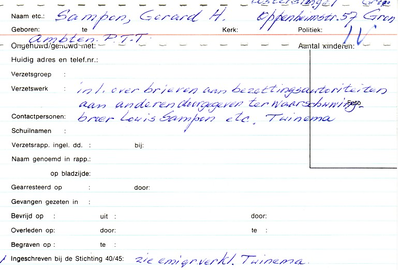 Naam etc.: Sampon, Gerard H. Oppenheimstr. 57 Gron
Geboren: te Kerk: Politiek:
ambten. P.T.T. IV
Ongehuwd/gehuwd met: Aantal kinderen:
Huidig adres en telef.nr.:
Verzetsgroep :
Verzetswerk : inl. over brieven aan bezettingsautoriteiten
aan anderen doorgegeven ter waarschuwing.
Foto
Contactpersonen: broer Louis Sampon etc. Twinema
Schuilnaam :
Verzetsrapp. ingel. dd. : bij:
Naam genoemd in rapp.:
op bladzijde:
Gearresteerd op : door:
Gevangen gezeten in :
Bevrijd op : uit : door:
Overleden op: door: te :
Begraven op : te :
Ingeschreven bij de Stichting 40/45: zie emigr verkl. Twinema